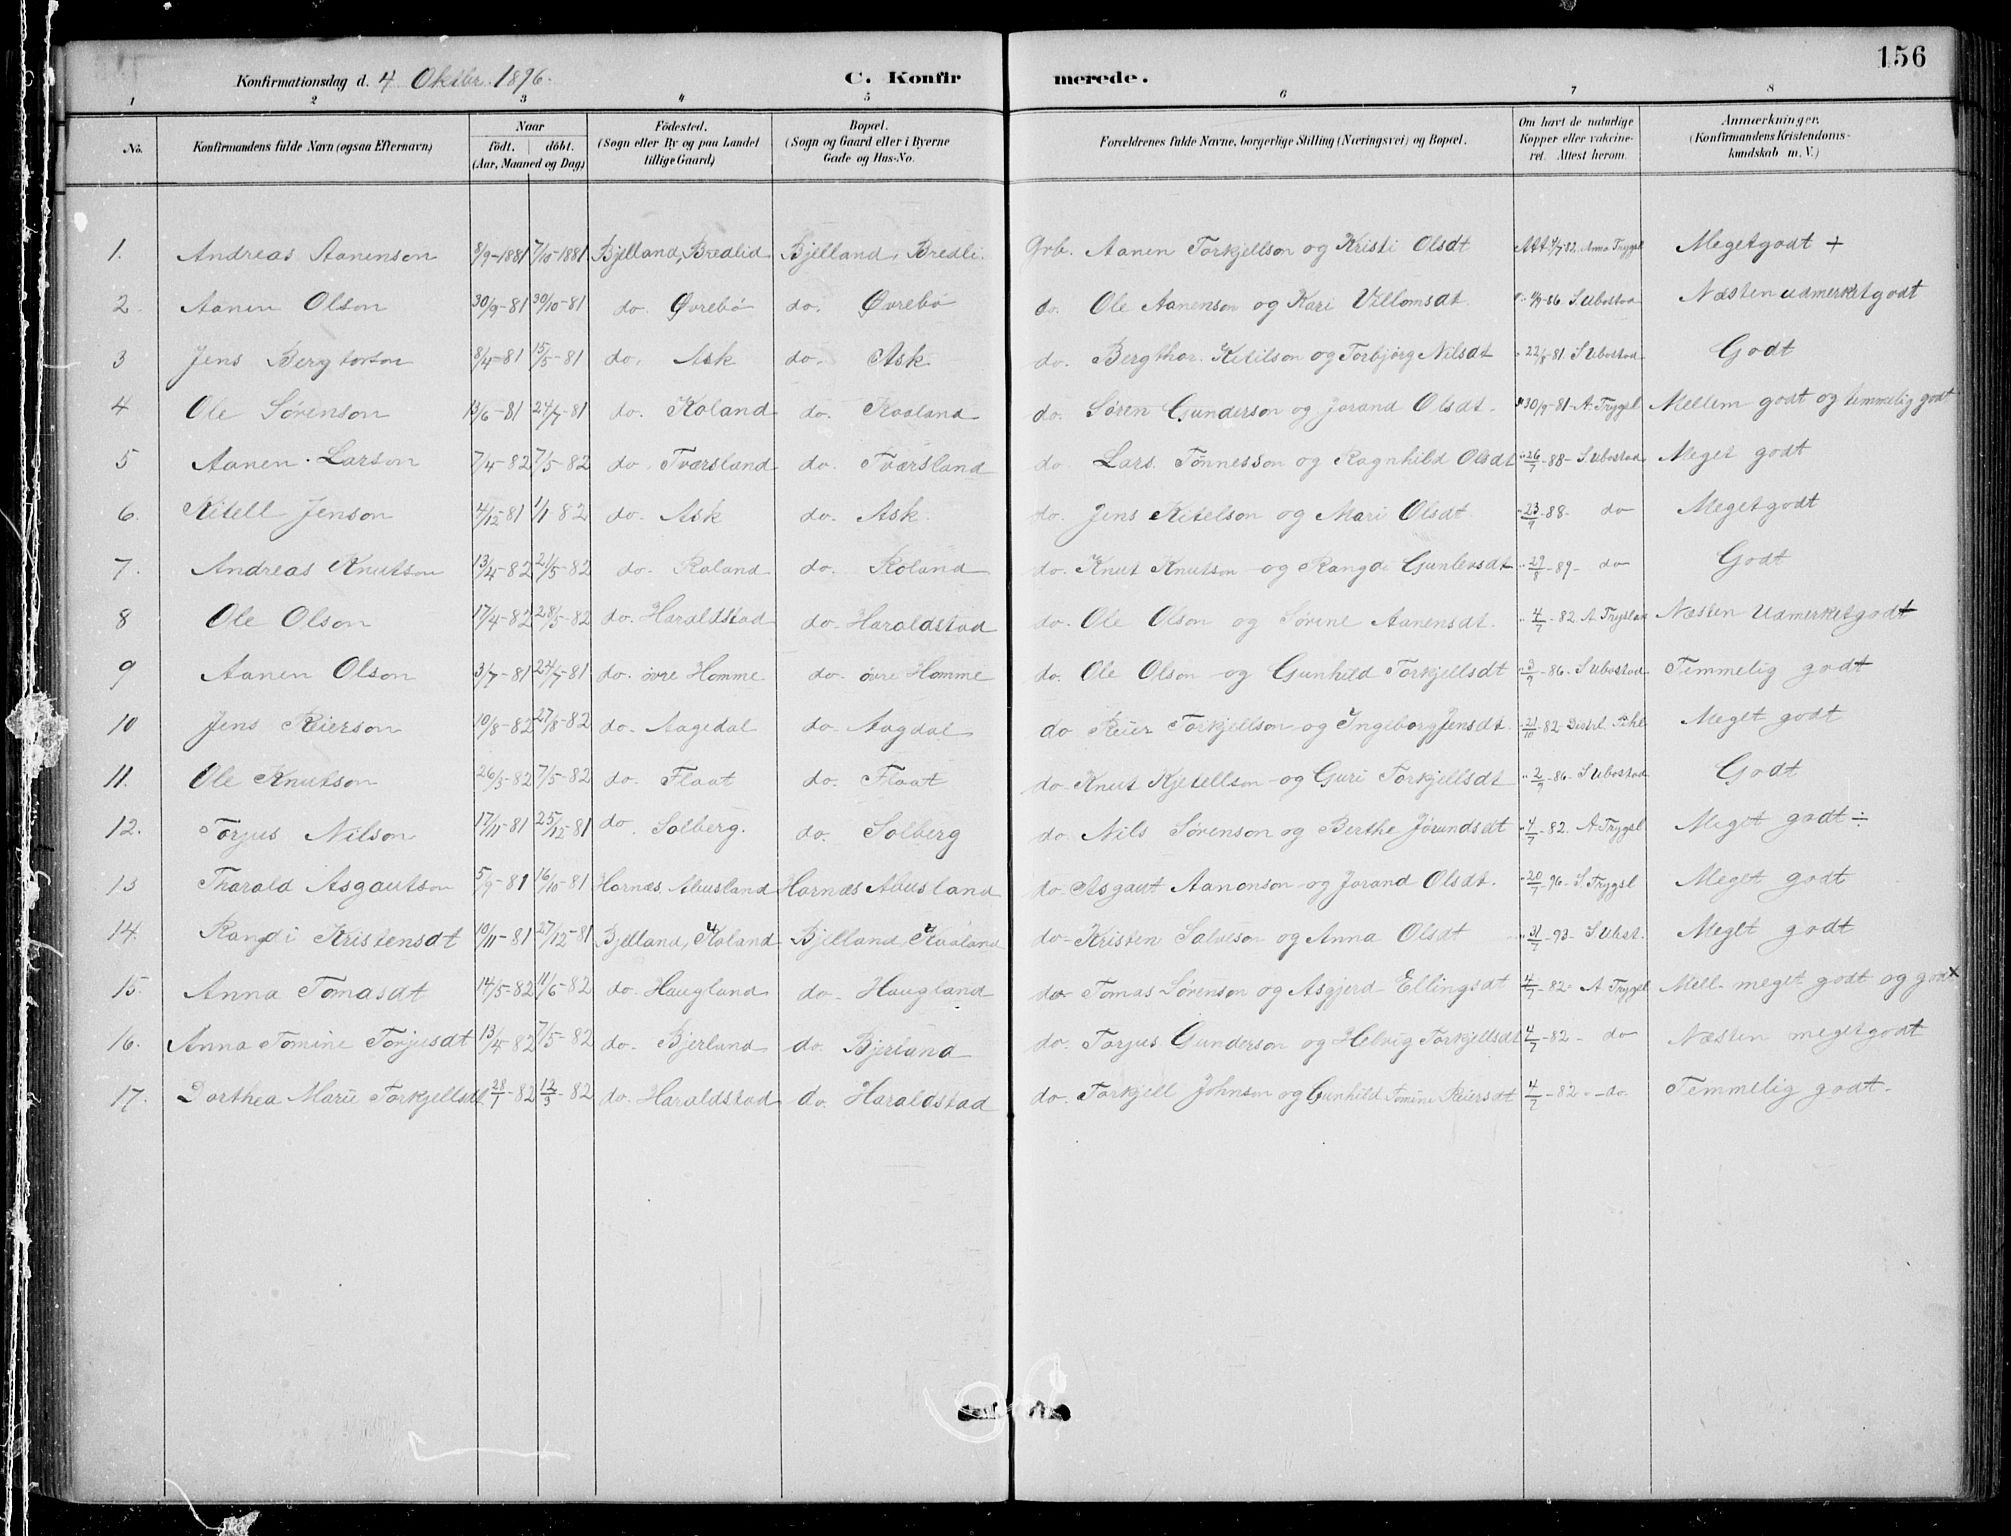 156
Konfirmationsdag d. 4 Oktbr. 1896.
C. Konfirmerede.
1 2 3 4 5 6 7 8
No. | Konfirmandens fulde Navn (ogsaa Efternavn) | Naar født. døbt. (Aar, Maaned og Dag) | Fødested. (Sogn eller By og paa Landet tillige Gaard) | Bopæl. (Sogn og Gaard eller i Byerne Gade og Hus-No. | Forældrenes fulde Navne, borgerlige Stilling (Næringsvei) og Bopæl. | Om havt de naturlige Kopper eller vakcineret. Attest herom. | Anmærkninger. (Konfirmandens Kristendomskundskab m. V.)
1. Andreas Aanenson 8/9-1881 7/10-1881 Bjelland, Bredlid Bjelland, Bredli. Grb. Aanen Torkjellson og Kristi Olsdt Att 4/7-82. Anna Trygsl Megetgodt +
2. Aanen Olson 30/9-81 30/10-81 do. Øvrebø do. Øvrebø do. Ole Aanenson og Kari Villomsdt. -86. S. Ubostad Næsten udmerketgodt
3 Jens Bergtorson 8/4-81 15/5-81 do. Ask do. Ask do. Bergthor Ketilson og Torbjørg Nilsdt " 22/8-81. S Ubostad Godt
4 Ole Sørenson 13/6-81 24/7-81 do. Koland do. Kaaland do. Søren Gunderson og Jorand Olsdt. " 30/9-81-A. Trygsl Mellem godt og temmelig godt
5 Aanen Larson 7/4-82 7/5-82 do. Tværsland do. Tværsland do. Lars Tönnesson og Ragnhild Olsdt " 26/7-88- S. Ubostad Meget godt
6. Kitell Jenson 4/12-81 1/1-82 do. Ask do. Ask. do. Jens Kitelson og Mari Olsdt. " 23/9-88- do Megetgodt
7. Andreas Knutson 13/4-82 21/5-82 do. Roland do. Roland do. Knut Knutson og Rangdi Gunlevsdt " 29/8-89- do Godt
8 Ole Olson 17/4-82 28/5-82 do. Haraldstad do. Haraldstad do. Ole Olson og Sørine Aanensdt. " 4/7-82 A. Tryslan Næsten Udmerketgodt
9 Aanen Olson 3/7-81 24/7-81 do. övre Homme do. övre Homme do. Ole Olson og Gunhild Torkjellsdt " 3/9-86. S Ubostad Temmelig godt
10 Jens Reierson 10/8-82 27/8-82 do. Aagedal do. Aagdal do Reier Torkjellson og Ingeborg Jensdt. " 21/10-82 Distrl. Meget godt
11. Ole Knutson 26/3-82 7/5-82 do. Flaat do. Flaat do. Knut Kjetellson og Guri Torkjellsdt " 2/9-86- S Ubostad Godt
12. Torjus Nilson 17/11-81 25/12-81 do. Solberg. do. Solberg do Nils Sørenson og Berthe Jörundsdt " 4/7-82. A. Trygsl Meget godt ÷
13 Tharald Asgautson 5/9-81 16/10-81 Hornæs, Abusland Hornæs Abusland do Asgaut Aanonson og Jorand Olsdt. " 20/7-96- S. Trygsl Meget godt
14. Rangdi Kristensdt 10/11-81 27/12-81 Bjelland, Koland Bjelland, Kaaland do- Kristen Salveson og Anna Olsdt " 31/7-93- S Ubst. Meget godt
15. Anna Tomasdt 14/5-82 11/6-82 do. Haugland do. Haugland do Tomas Sørenson og Asgjerd Ellingsdt 4/7-82- A Trygsl Mell. meget godt og godt
16. Anna Tomine Torjusdt 13/4-82 7/5-82 do. Bjerland do. Bjerland do. Torjus Gunderson og Helvig Torkjellsdt 4/7-82- do Næsten megetgodt
17. Dorthea Marie Torkjellsdt. 28/1-82 12/3-82 do. Haraldstad do. Haraldstad do. Torkjell Johnson og Gunhild Tomine Reiersdt 4/7-82--do. Temmelig godt.